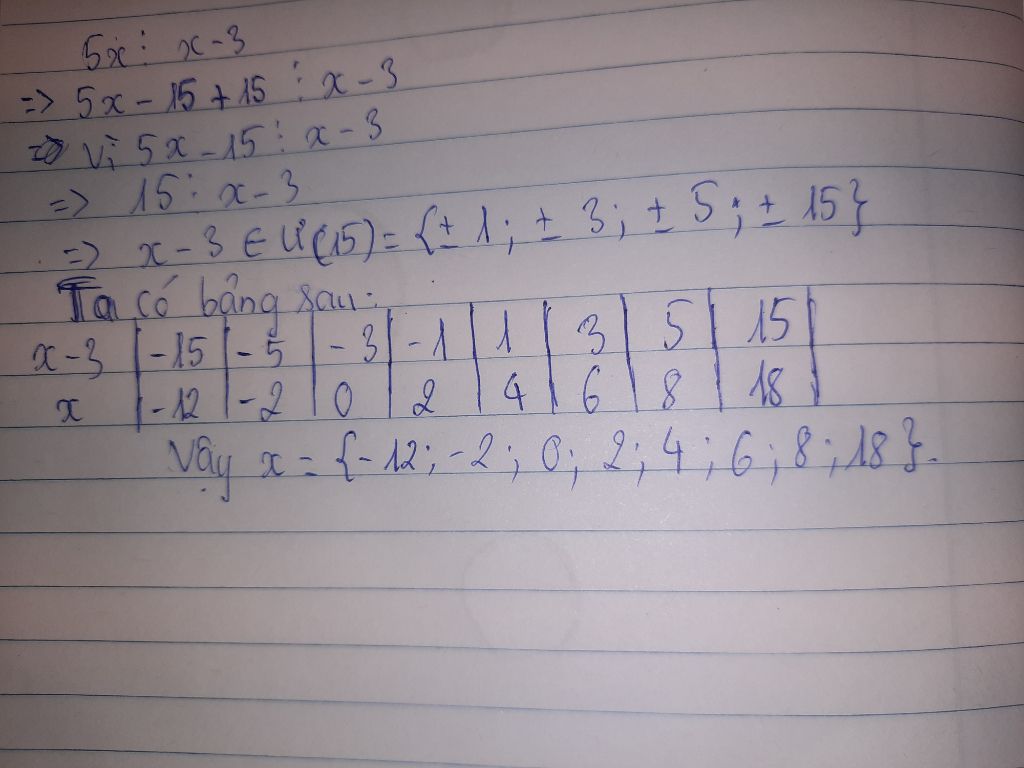 5x ⋮ x - 3
=> 5x - 15 + 15 ⋮ x - 3
=> Vì 5x - 15 ⋮ x - 3
=> 15 ⋮ x - 3
=> x - 3 ∈ Ư(15) = {± 1 ; ± 3 ; ± 5 ; ± 15}
Ta có bảng sau:
x - 3 | -15 | -5 | -3 | -1 | 1 | 3 | 5 | 15 |
x | -12 | -2 | 0 | 2 | 4 | 6 | 8 | 18 |
Vậy x = {-12 ; -2 ; 0 ; 2 ; 4 ; 6 ; 8 ; 18}.